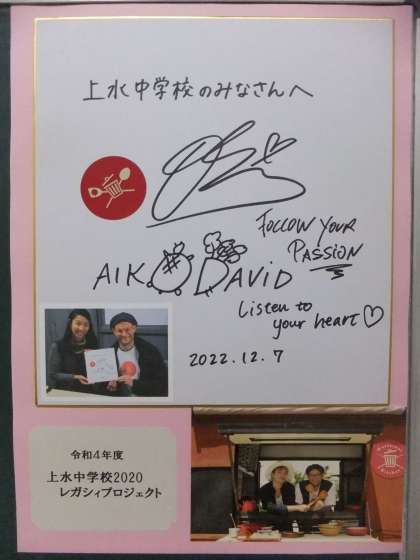 上水中学校のみなさんへ
FOLLOW YOUR
PASSION
AIKO DAVID
Listen to
your heart
2022.12.7
令和4年度
上水中学校2020
レガシィプロジェクト